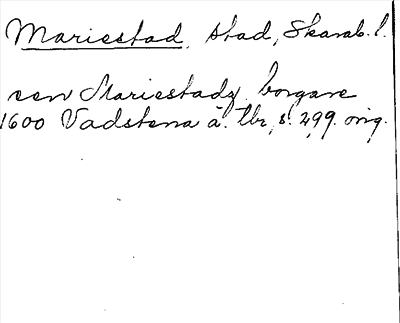 Mariestad, stad, Skarab. l.
een Mariestadz borgare
1600 Vadstena ä. tbr, s. 299. orig.